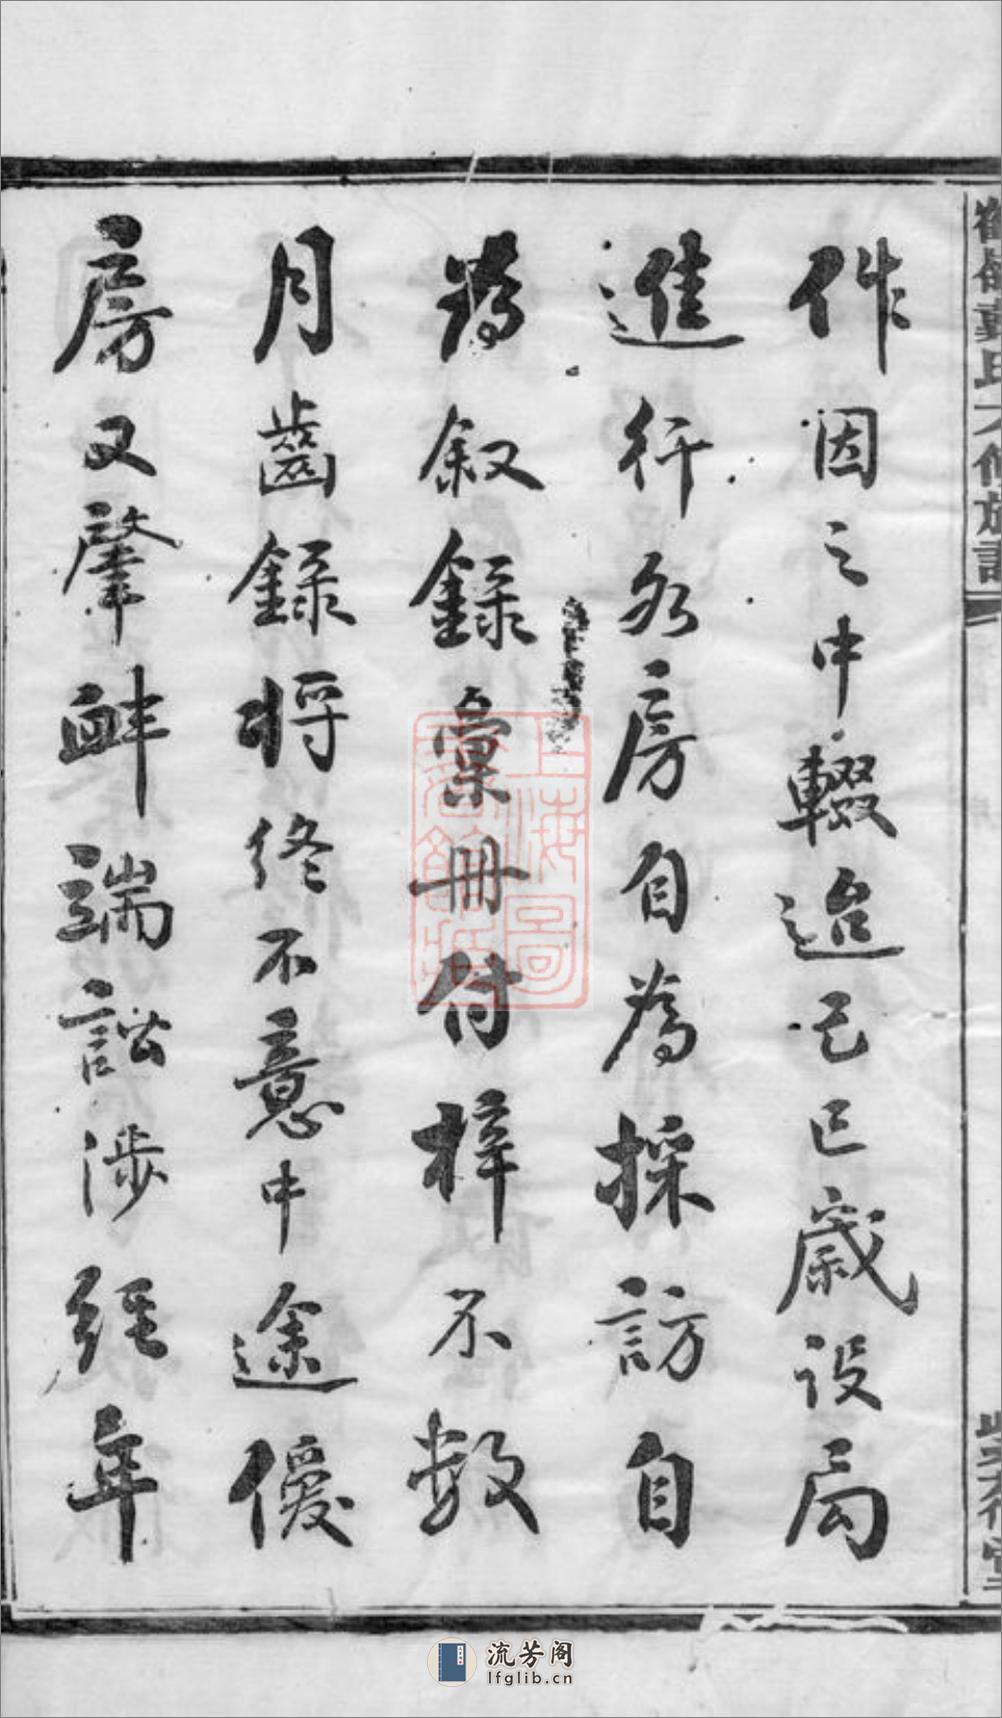 作因之中輟迨己巳歲設局
進行各房自為採訪自
為叙錄彙冊付梓不數
月齒錄將終不意中途僾
房又肇衅端訟涉經年
氏六修族譜
上海圖書館藏
流芳阁
lfglib.cn